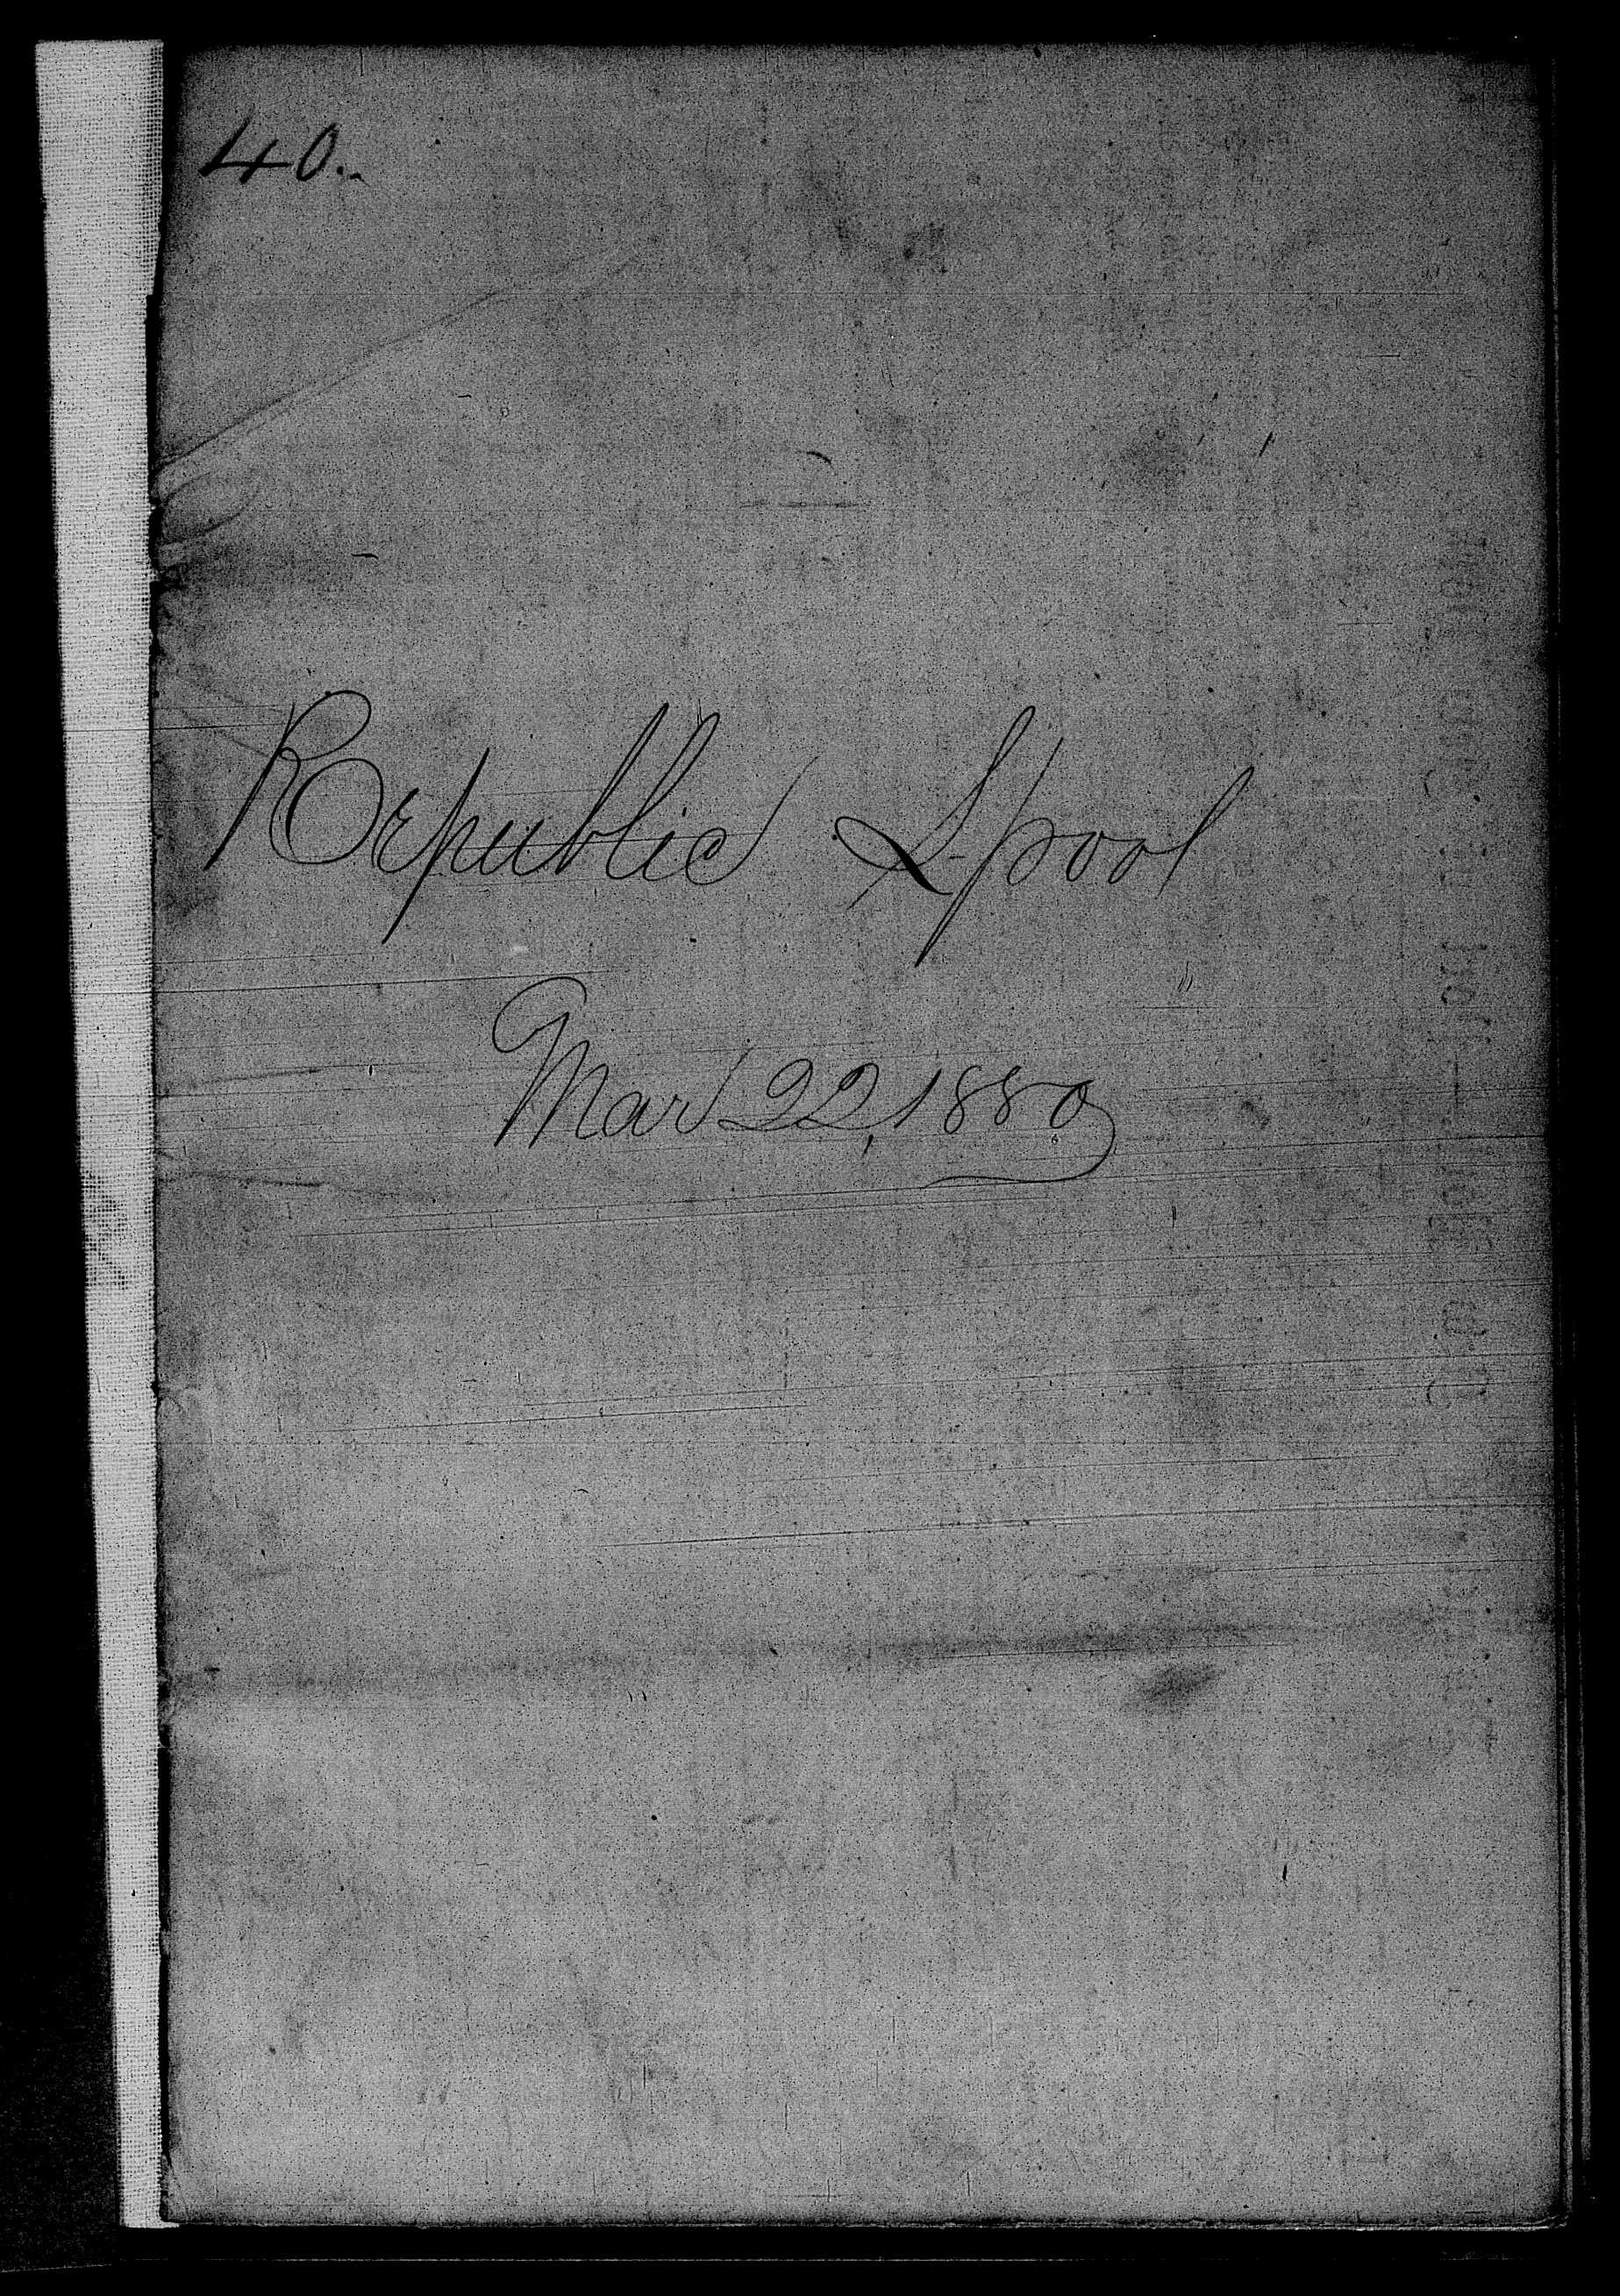 40..
Republic L-pool
Mar 22, 1880